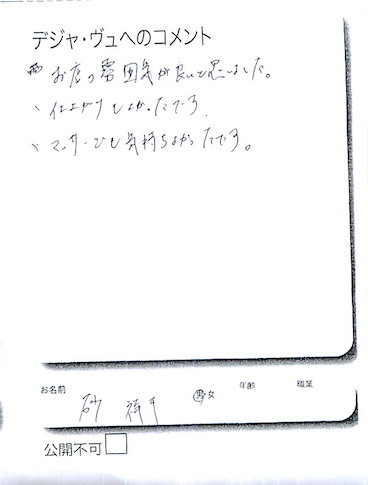 デジャ・ヴュへのコメント
お店の雰囲気が良いと思いました。
、仕上がりもよかったです.
、マッサージも気持ちよかったです。
お名前
男 女
年齢
職業
砂
公開不可